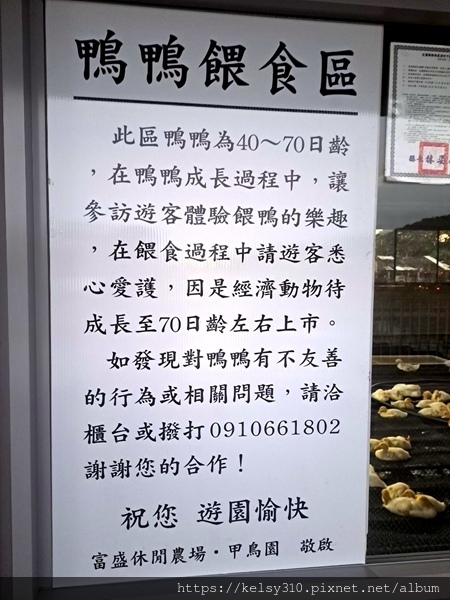 鴨鴨餵食區
此區鴨鴨為40～70日齡
，在鴨鴨成長過程中，讓
參訪遊客體驗餵鴨的樂趣
，在餵食過程中請遊客悉
心愛護，因是經濟動物待
成長至70日齡左右上市。
如發現對鴨鴨有不友善
的行為或相關問題，請洽
櫃台或撥打0910661802
謝謝您的合作！
祝您 遊園愉快
富盛休閒農場·甲鳥園 敬啟
https://kelsy310.pixnet.net/album